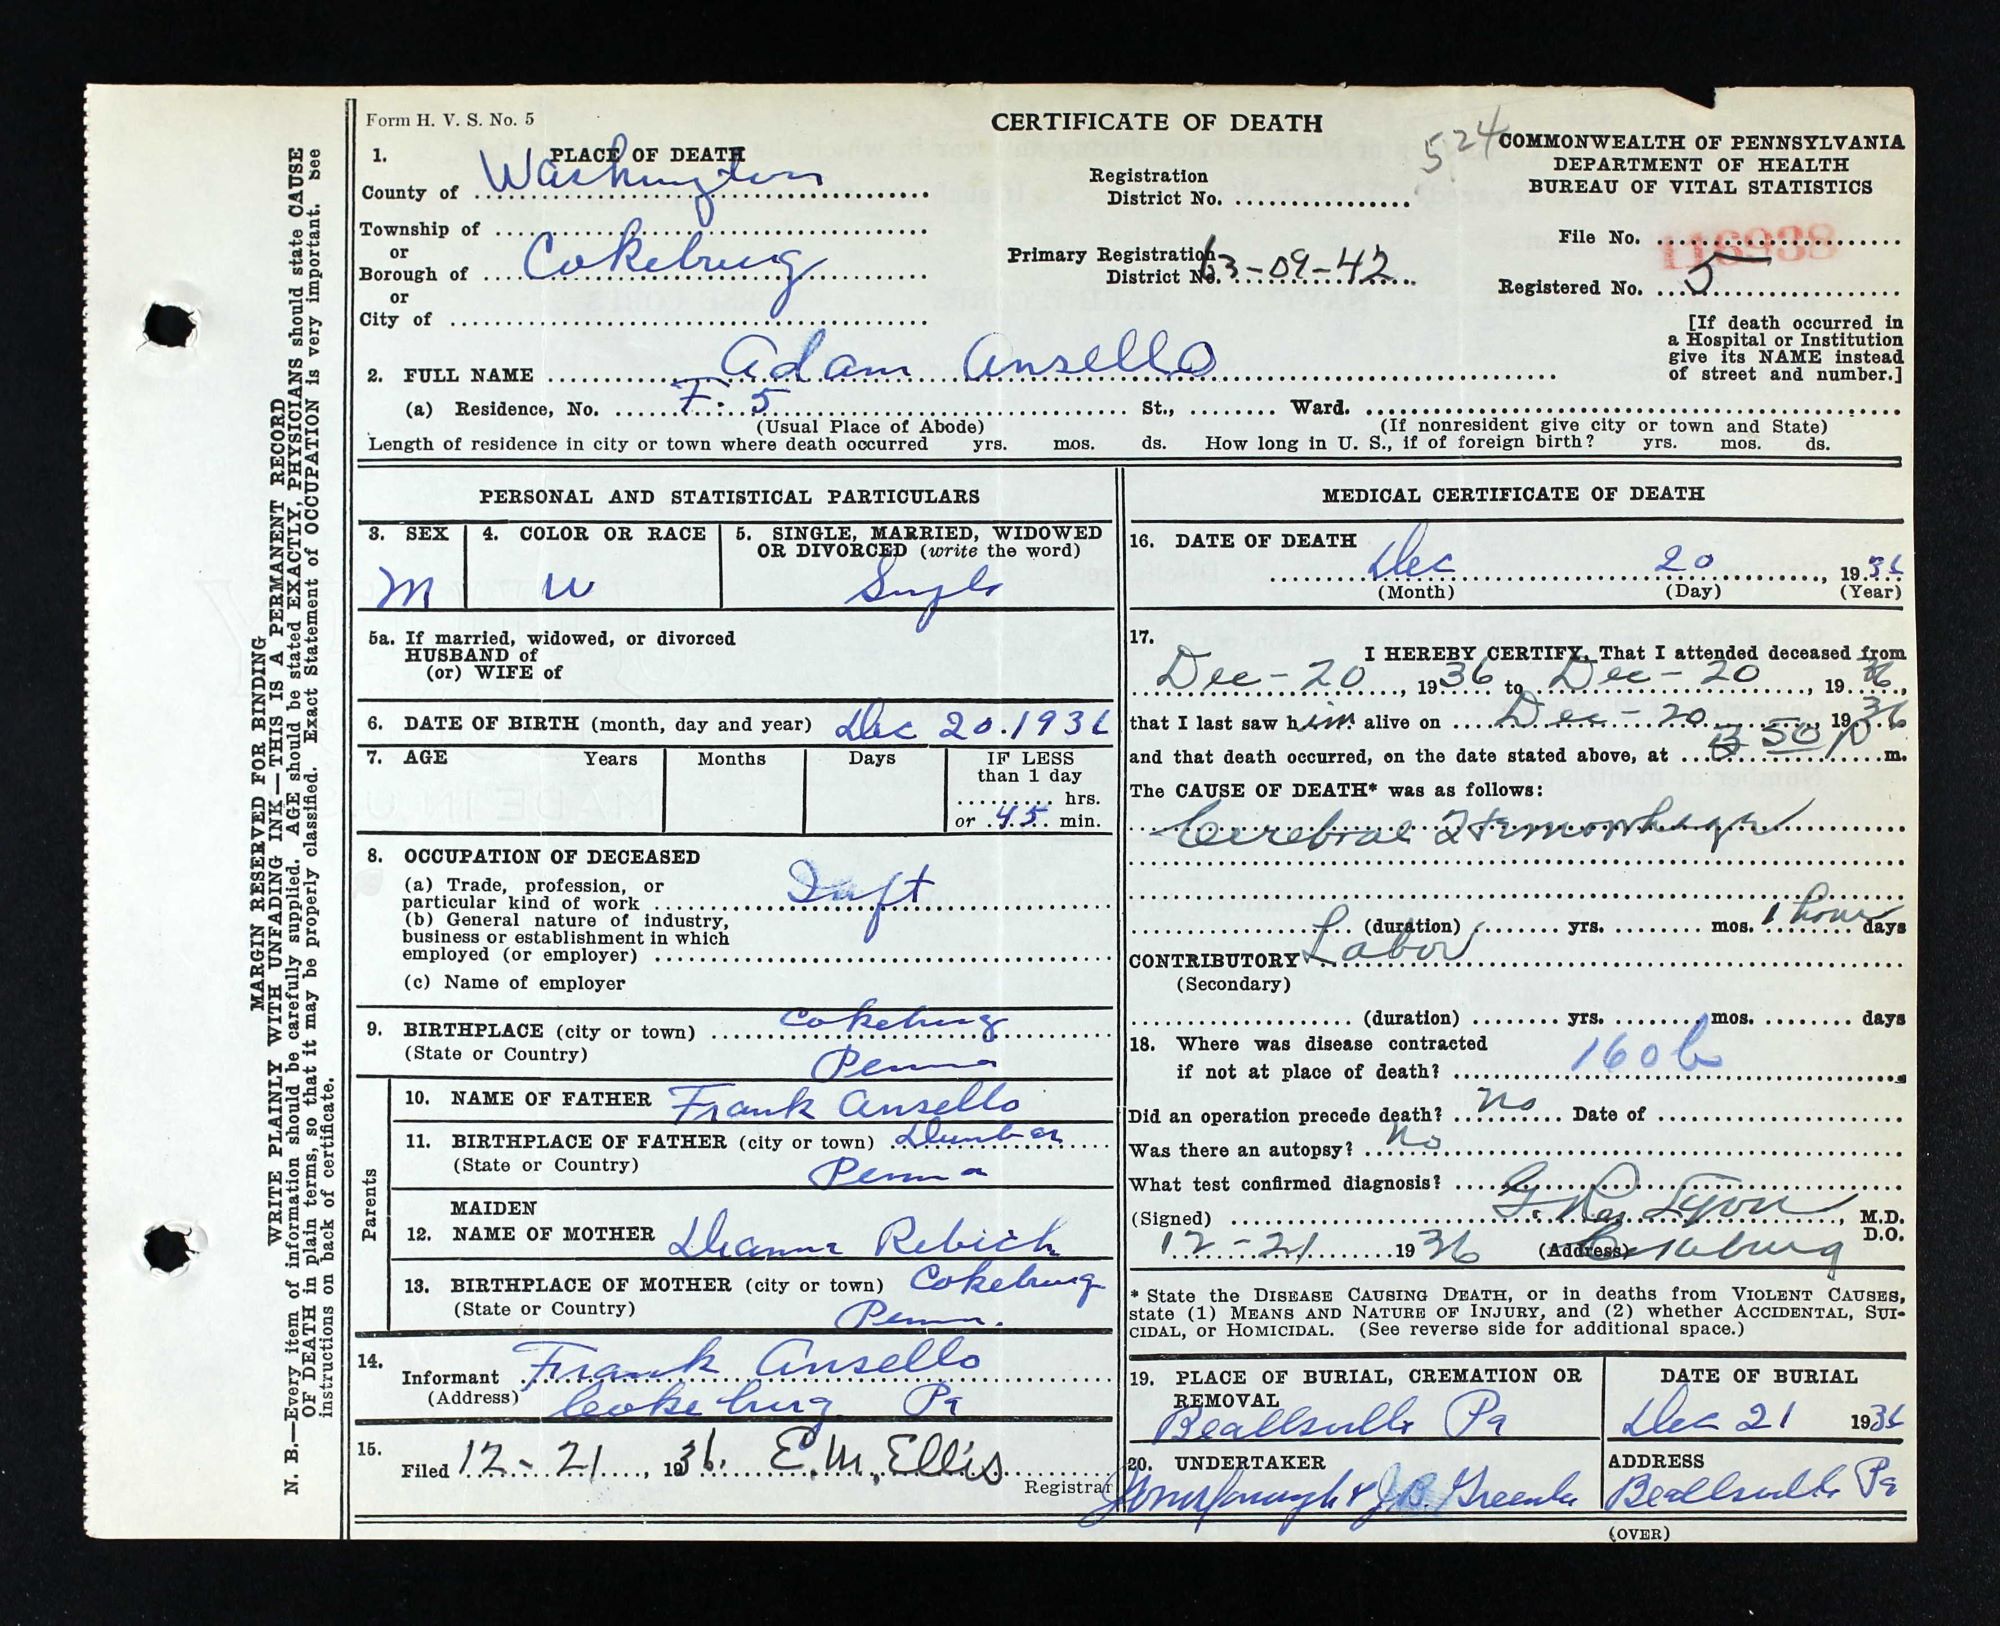 Form H. V. S. No. 5
CERTIFICATE OF DEATH
524
COMMONWEALTH OF PENNSYLVANIA
DEPARTMENT OF HEALTH
BUREAU OF VITAL STATISTICS
1. PLACE OF DEATH
County of Washington
Township of
or
Borough of Cokeburg
or
City of
Registration
District No.
Primary Registration
District No. 63-09-42
File No.
Registered No. 5
[If death occurred in
a Hospital or Institution
give its NAME instead
of street and number.]
2. FULL NAME Adam Ansello
(a) Residence, No. F. 5 St., Ward.
(Usual Place of Abode)
(If nonresident give city or town and State)
Length of residence in city or town where death occurred yrs. mos. ds. How long in U. S., if of foreign birth? yrs. mos. ds.
PERSONAL AND STATISTICAL PARTICULARS
3. SEX
M
4. COLOR OR RACE
W
5. SINGLE, MARRIED, WIDOWED
OR DIVORCED (write the word)
Single
5a. If married, widowed, or divorced
HUSBAND of
(or) WIFE of
6. DATE OF BIRTH (month, day and year) Dec 20. 1936
7. AGE Years Months Days
IF LESS
than 1 day
hrs.
or 45 min.
8. OCCUPATION OF DECEASED
(a) Trade, profession, or
particular kind of work
(b) General nature of industry,
business or establishment in which
employed (or employer)
(c) Name of employer
9. BIRTHPLACE (city or town) Cokeburg
(State or Country) Penna
Parents
10. NAME OF FATHER Frank Ansello
11. BIRTHPLACE OF FATHER (city or town) Dunbar
(State or Country) Penna
MAIDEN
12. NAME OF MOTHER Rebich
13. BIRTHPLACE OF MOTHER (city or town) Cokeburg
(State or Country) Penna.
14.
Informant Frank Ansello
(Address) Cokeburg Pa
15.
Filed 12-21, 1936. E.M. Ellis
Registrar
MEDICAL CERTIFICATE OF DEATH
16. DATE OF DEATH
Dec 20, 1936
(Month) (Day) (Year)
17.
I HEREBY CERTIFY, That I attended deceased from
Dec-20, 1936 to Dec-20, 1936,
that I last saw him alive on Dec-20, 1936
and that death occurred, on the date stated above, at 50 P m.
The CAUSE OF DEATH* was as follows:
Cerebral Hemorrhage
(duration) yrs. mos. 1 hour days
CONTRIBUTORY Labor
(Secondary)
(duration) yrs. mos. days
18. Where was disease contracted
if not at place of death? 160b
Did an operation precede death? No Date of
Was there an autopsy? No
What test confirmed diagnosis?
(Signed) Lyon, M.D.
D.O.
12-21 1936 (Address) Cokeburg
* State the DISEASE CAUSING DEATH, or in deaths from VIOLENT CAUSES,
state (1) MEANS AND NATURE OF INJURY, and (2) whether ACCIDENTAL, SUI-
CIDAL, or HOMICIDAL. (See reverse side for additional space.)
19. PLACE OF BURIAL, CREMATION OR
REMOVAL
Beallsville Pa
DATE OF BURIAL
Dec 21 1936
20. UNDERTAKER
ADDRESS
Beallsville Pa
(OVER)
MARGIN RESERVED FOR BINDING
WRITE PLAINLY WITH UNFADING INK—THIS IS A PERMANENT RECORD
N. B.—Every item of information should be carefully supplied. AGE should be stated EXACTLY, PHYSICIANS should state CAUSE
OF DEATH in plain terms, so that it may be properly classified. Exact Statement of OCCUPATION is very important. See
instructions on back of certificate.